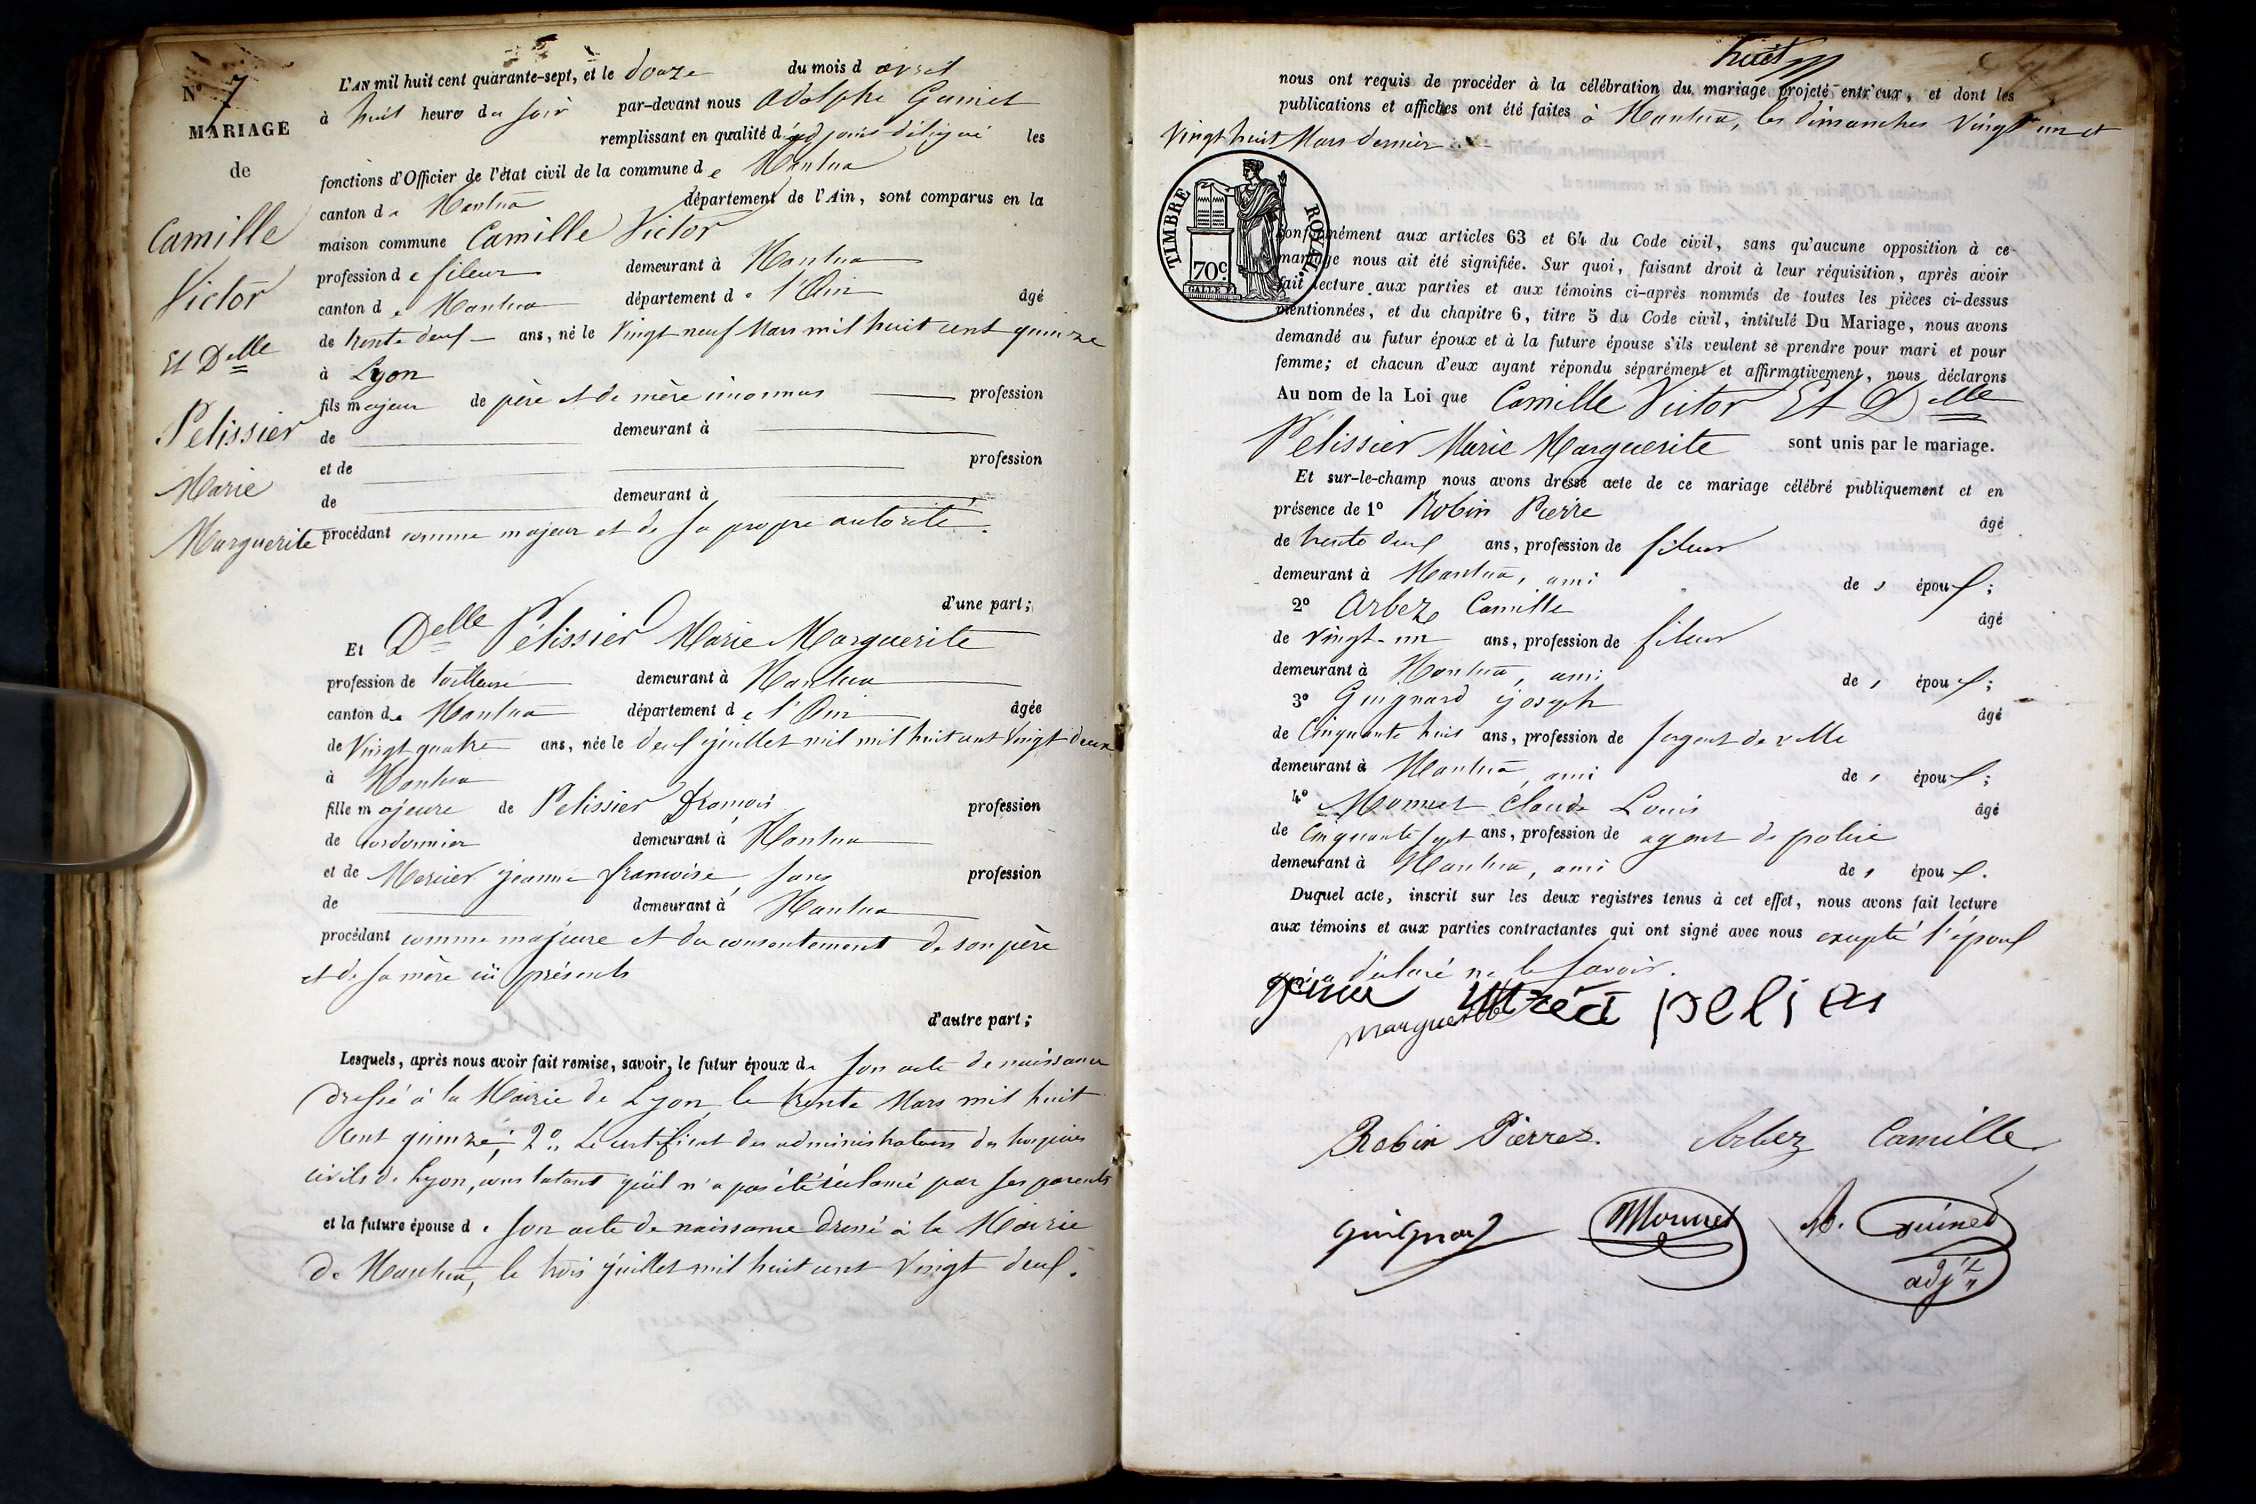 N° 7
MARIAGE
de
Camille
Victor
Et Delle
Pelissier
Marie
Marguerite
L'AN mil huit cent quarante-sept, et le douze du mois d avril
à huit heure du soir par-devant nous Adolphe Guinet
remplissant en qualité d'adjoint délégué les
fonctions d'Officier de l'état civil de la commune de Nantua
canton de Nantua département de l'Ain, sont comparus en la
maison commune Camille Victor
profession de fileur demeurant à Nantua
canton de Nantua département de l'Ain âgé
de trente deux ans, né le Vingt neuf Mars mil huit cent quinze
à Lyon
fils majeur de père et de mère inconnus profession
de demeurant à
et de profession
de demeurant à
procédant comme majeur et de sa propre autorité.
d'une part;
Et Delle Pélissier Marie Marguerite
profession de tailleuse demeurant à Nantua
canton de Nantua département de l'Ain âgée
de Vingt quatre ans, née le deux juillet mil mil huit cent Vingt deux
à Nantua
fille majeure de Pelissier françois profession
de cordonnier demeurant à Nantua
et de Mercier jeanne françoise sans profession
de demeurant à Nantua
procédant comme majeure et du consentement de son père
et de sa mère ici présents
d'autre part;
Lesquels, après nous avoir fait remise, savoir, le futur époux de son acte de naissance
dressé à la Mairie de Lyon le trente Mars mil huit
cent quinze; 2° Le certificat des administrateurs des hospices
civils de Lyon, constatant qu'il n'a pas été réclamé par ses parents
et la future épouse de son acte de naissance dressé à la Mairie
de Nantua, le trois juillet mil huit cent Vingt deux.
huit
nous ont requis de procéder à la célébration du mariage projeté entr'eux, et dont les
publications et affiches ont été faites à Nantua, les dimanches Vingt un et
Vingt huit Mars dernier
TIMBRE ROYAL.
70c.
conformément aux articles 63 et 64 du Code civil, sans qu'aucune opposition à ce
mariage nous ait été signifiée. Sur quoi, faisant droit à leur réquisition, après avoir
fait lecture aux parties et aux témoins ci-après nommés de toutes les pièces ci-dessus
mentionnées, et du chapitre 6, titre 5 du Code civil, intitulé Du Mariage, nous avons
demandé au futur époux et à la future épouse s'ils veulent se prendre pour mari et pour
femme; et chacun d'eux ayant répondu séparément et affirmativement, nous déclarons
Au nom de la Loi que Camille Victor Et Delle
Pélissier Marie Marguerite sont unis par le mariage.
Et sur-le-champ nous avons dressé acte de ce mariage célébré publiquement et en
présence de 1° Robin Pierre âgé
de trente deux ans, profession de fileur
demeurant à Nantua, ami de s époux;
2° Arbez Camille âgé
de Vingt-un ans, profession de fileur
demeurant à Nantua, ami de s époux;
3° Guignard joseph âgé
de Cinquante huit ans, profession de sergent de ville
demeurant à Nantua, ami de s époux;
4° Monnet Claude Louis âgé
de Cinquante sept ans, profession de agent de police
demeurant à Nantua, ami de s époux.
Duquel acte, inscrit sur les deux registres tenus à cet effet, nous avons fait lecture
aux témoins et aux parties contractantes qui ont signé avec nous excepté l'époux
qui a déclaré ne le savoir.
marguerite
Robin Pierre Arbez Camille
Guignard Monnet A. Guinet
adjt